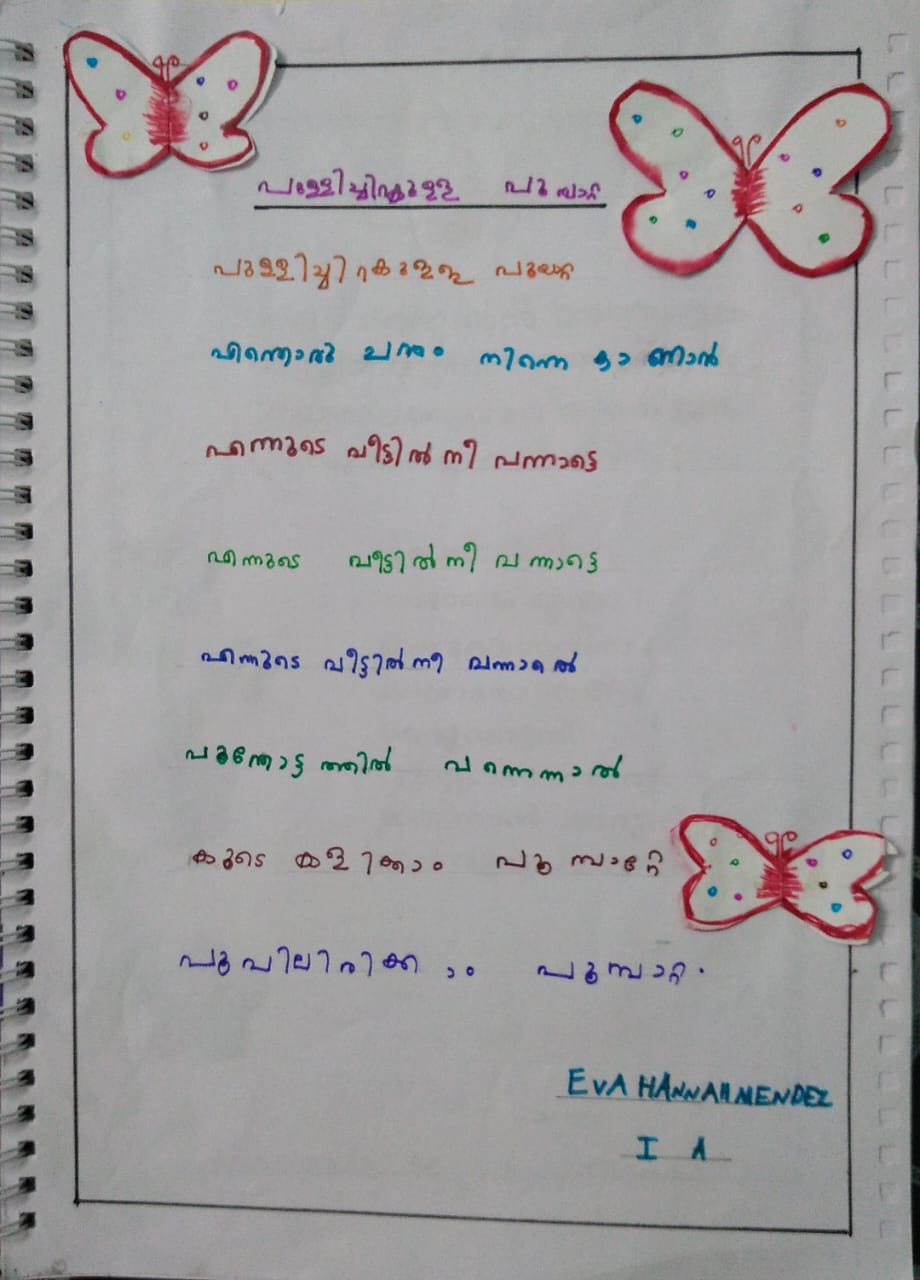 പുള്ളിച്ചിറകുള്ള പൂമ്പാറ്റ
പുള്ളിച്ചിറകുള്ള പൂമ്പാറ്റ
എന്തൊരു ചന്തം നിന്നെ കാണാൻ
എന്നുടെ വീട്ടിൽ നീ വന്നാട്ടെ
എന്നുടെ വീട്ടിൽ നീ വന്നാട്ടെ
എന്നുടെ വീട്ടിൽ നീ വന്നാൽ
പൂന്തോട്ടത്തിൽ വന്നെന്നാൽ
കൂടെ കളിക്കാം പൂമ്പാറ്റേ
പൂവിലിരിക്കാം പൂമ്പാറ്റ.
EVA HANNAH MENDEZ
I A